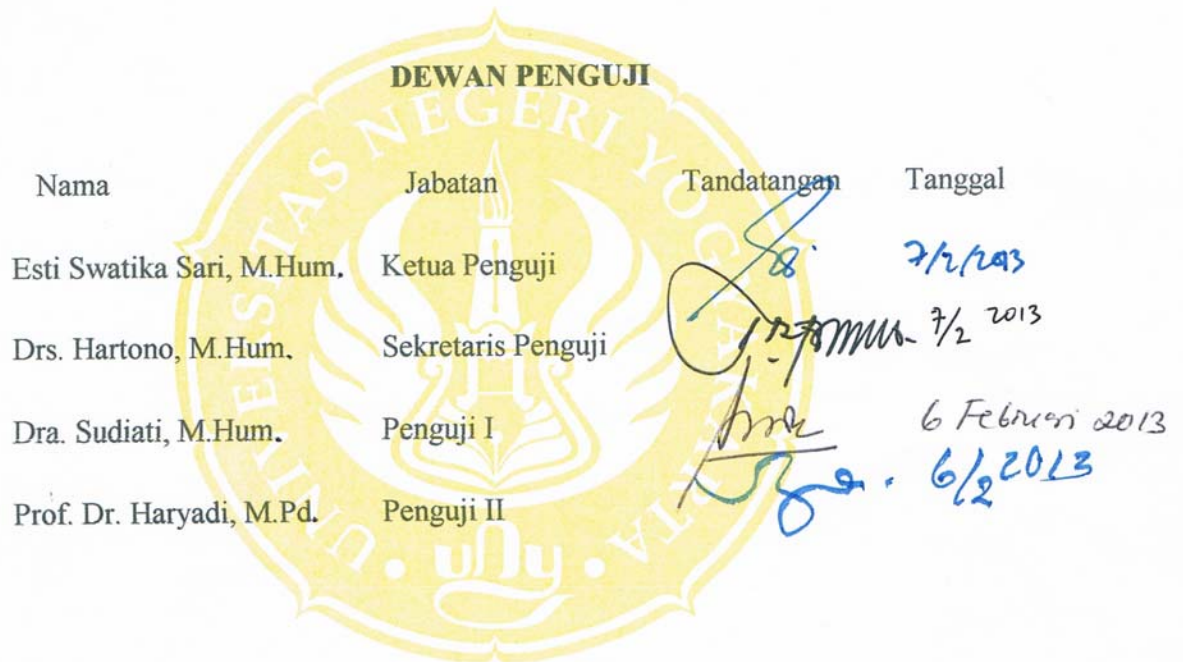 DEWAN PENGUJI
UNIVERSITAS NEGERI YOGYAKARTA
Nama Jabatan Tandatangan Tanggal
Esti Swatika Sari, M.Hum. Ketua Penguji 7/2/2013
Drs. Hartono, M.Hum. Sekretaris Penguji 7/2 2013
Dra. Sudiati, M.Hum. Penguji I 6 Februari 2013
Prof. Dr. Haryadi, M.Pd. Penguji II 6/2 2013
uny